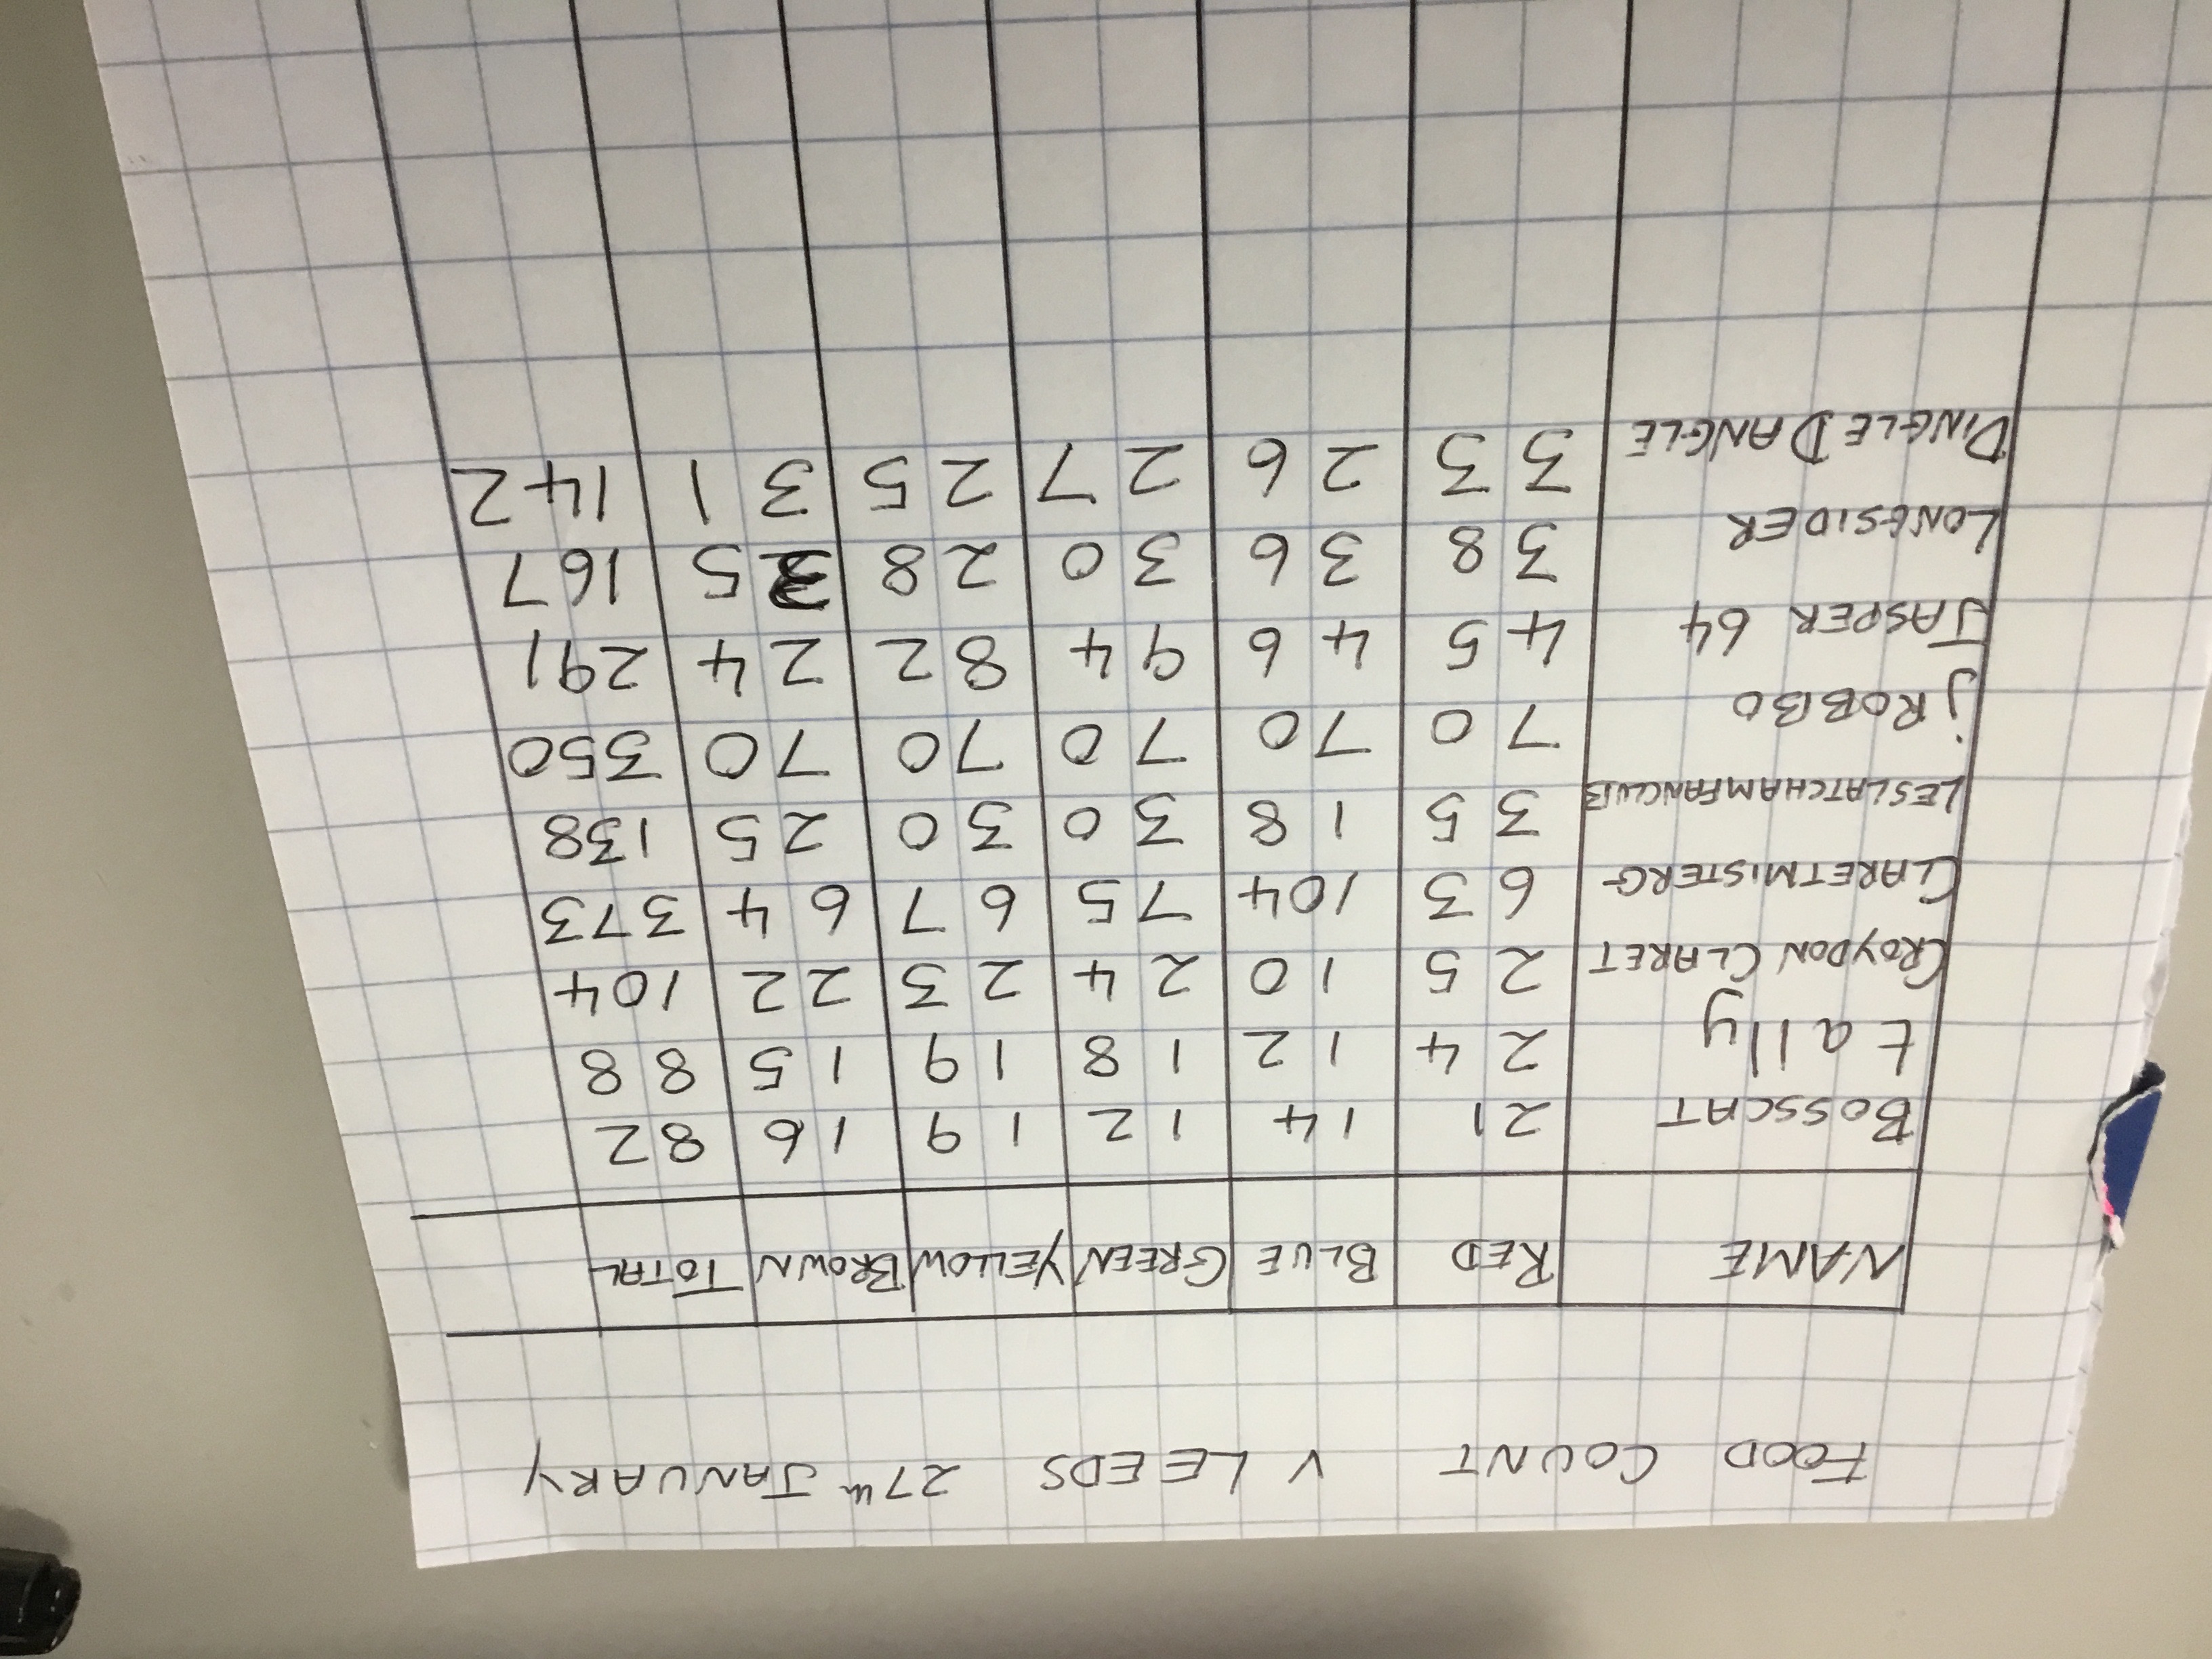 FOOD COUNT V LEEDS 27TH JANUARY
NAME RED BLUE GREEN YELLOW BROWN TOTAL
BOSSCAT 21 14 12 19 16 82
tally 24 12 18 19 15 88
CROYDON CLARET 25 10 24 23 22 104
CLARETMISTERG 63 104 75 67 64 373
LESLATCHAMFANCLUB 35 18 30 30 25 138
jROBBO 70 70 70 70 70 350
JASPER 64 45 46 94 82 24 291
LONGSIDER 38 36 30 28 35 167
DINGLE DANGLE 33 26 27 25 31 142